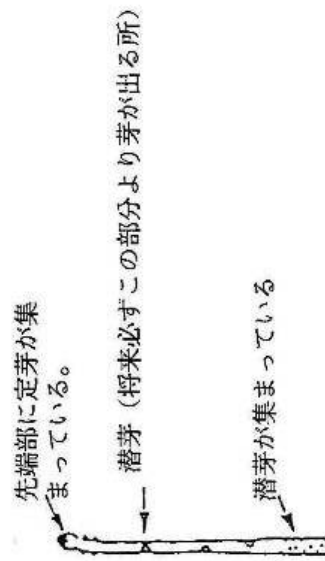 先端部に定芽が集
まっている。
潜芽（将来必ずこの部分より芽が出る所）
潜芽が集まっている